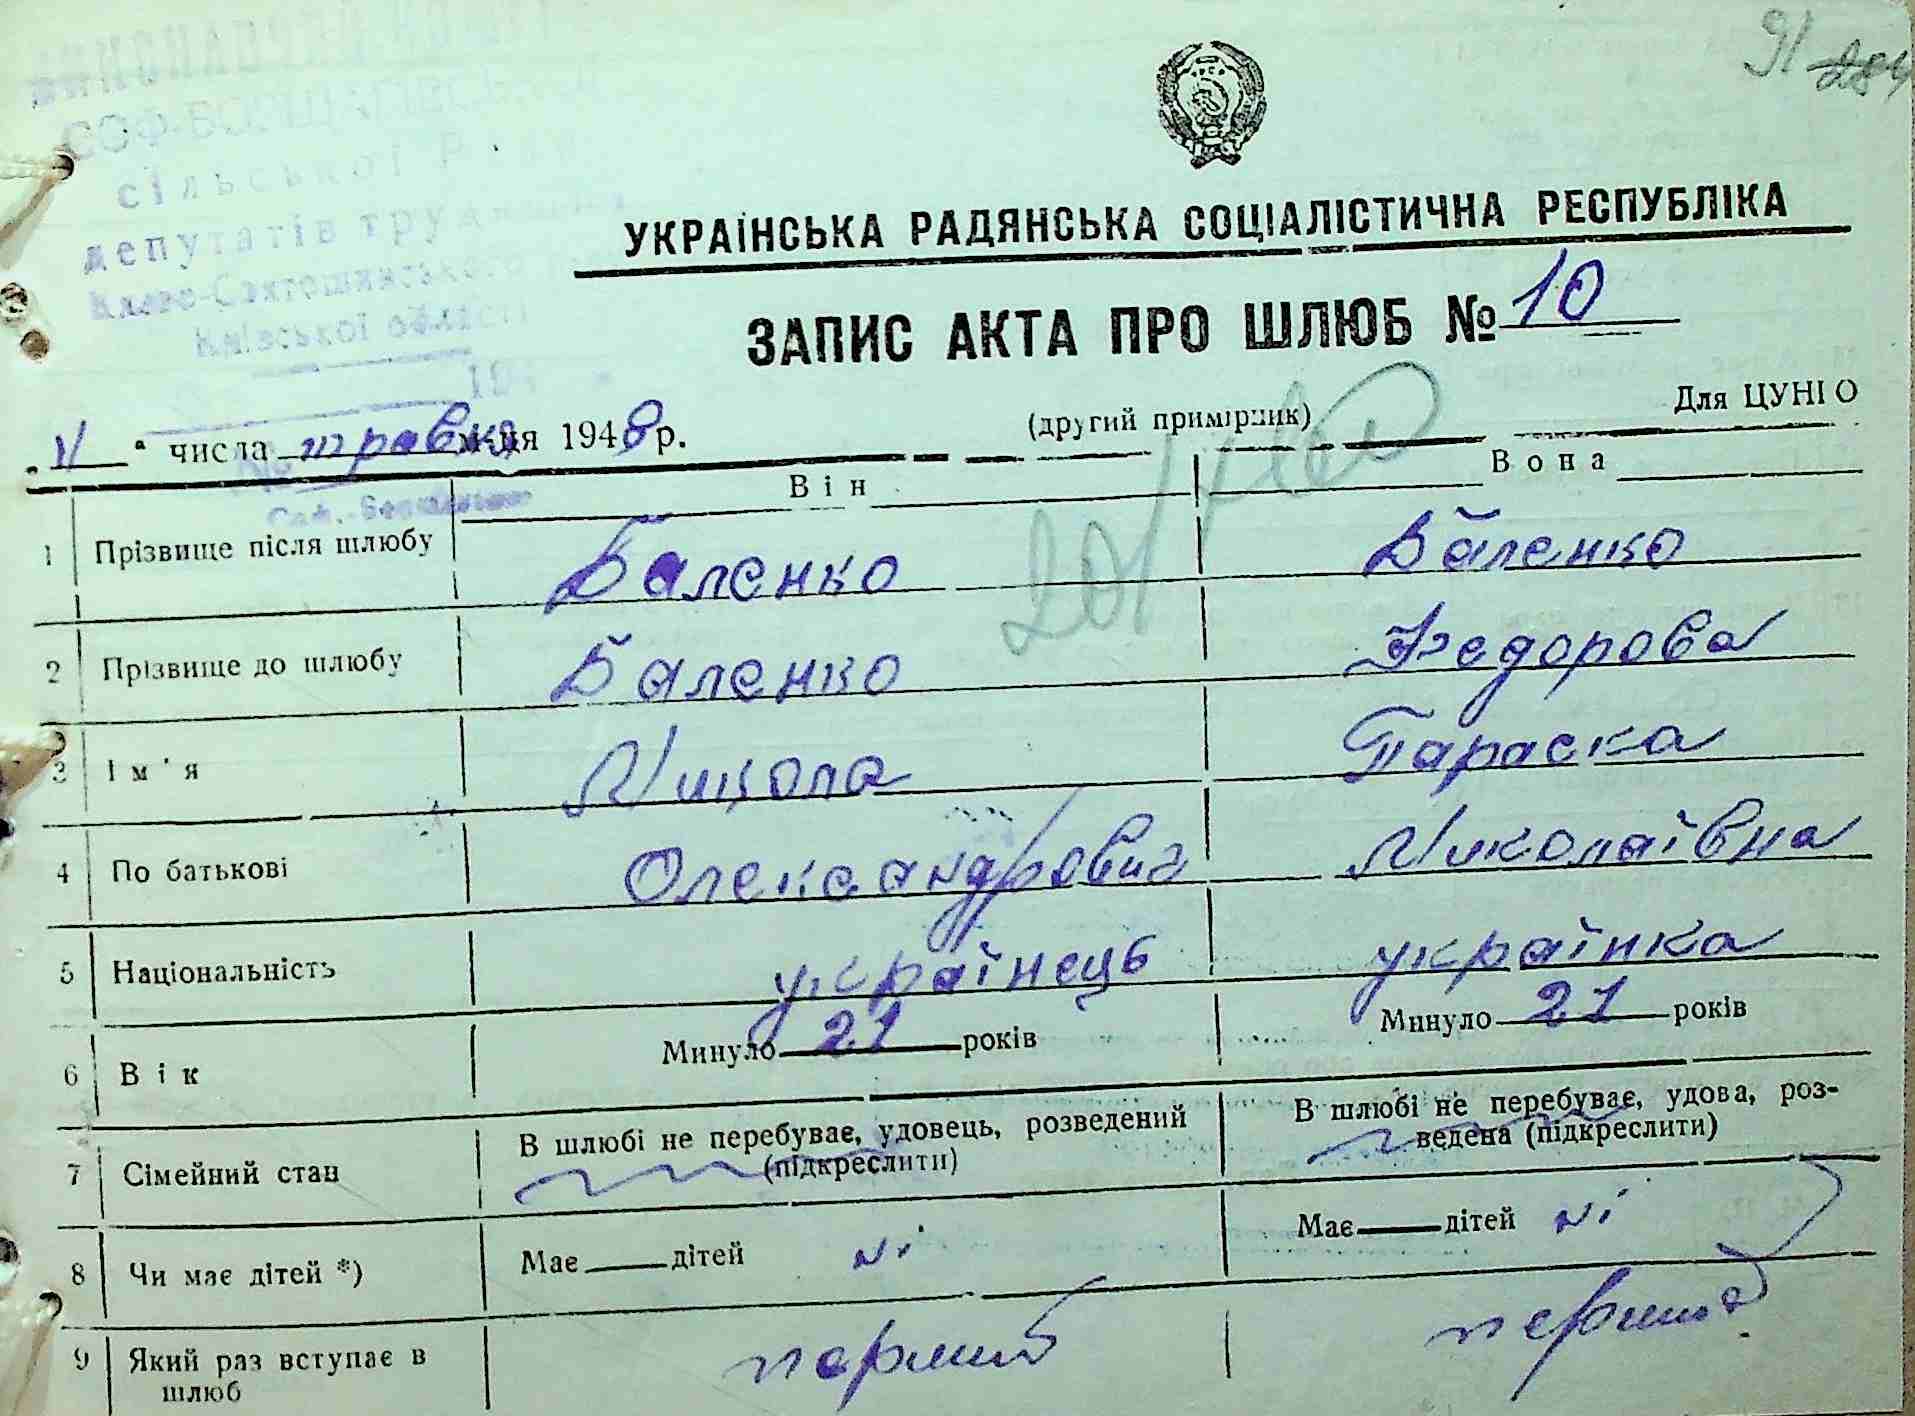 91 284
СОФ-БОРЩАГІВСЬКОЇ
сільської Ради
депутатів трудящих
Києво-Святошинського
Київської області
194
УКРАЇНСЬКА РАДЯНСЬКА СОЦІАЛІСТИЧНА РЕСПУБЛІКА
ЗАПИС АКТА ПРО ШЛЮБ № 10
(другий примірник) Для ЦУНГО
числа травня м-ця 1948 р.
Він Вона
1 Прізвище після шлюбу Баленко Баленко
2 Прізвище до шлюбу Баленко Федорова
3 Ім'я Микола Параска
4 По батькові Олександрович Миколаївна
5 Національність українець українка
6 Вік Минуло 21 років Минуло 21 років
7 Сімейний стан В шлюбі не перебуває, удовець, розведений (підкреслити) В шлюбі не перебуває, удова, роз-
ведена (підкреслити)
8 Чи має дітей *) Має дітей ні Має дітей ні
9 Який раз вступає в перший перший
шлюб